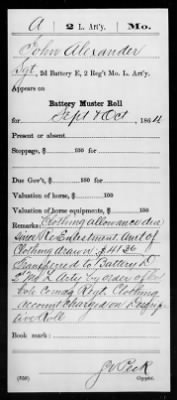 A | 2 L. Art'y. | Mo.
John Alexander
Sgt, 2d Battery E, 2 Reg't Mo. L. Art'y.
Appears on
Battery Muster Roll
for Sept & Oct, 1864
Present or absent
Stoppage, $ 100 for
Due Gov't, $ 100 for
Valuation of horse, $ 100
Valuation of horse equipments, $ 100
Remarks: Clothing allowance due
since Re Enlistment. Amt of
Clothing drawn $41 36
Transferred to Battery D
2d Mo L Arty by order of
Comdg Regt. Clothing
account charged on Descrip
tive Roll
Book mark:
J W Peck
(858) Copyist.